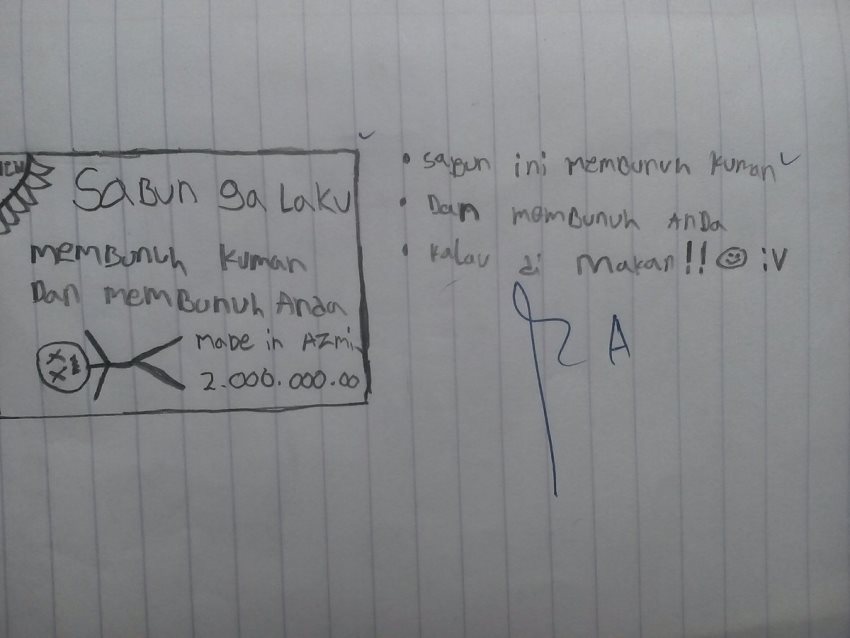 Sabun ga Laku
membunuh kuman
Dan membunuh Anda
Made in AZmi
2.000.000.00
• sabun ini membunuh kuman
• Dan membunuh Anda
• kalau di makan!! :V
A